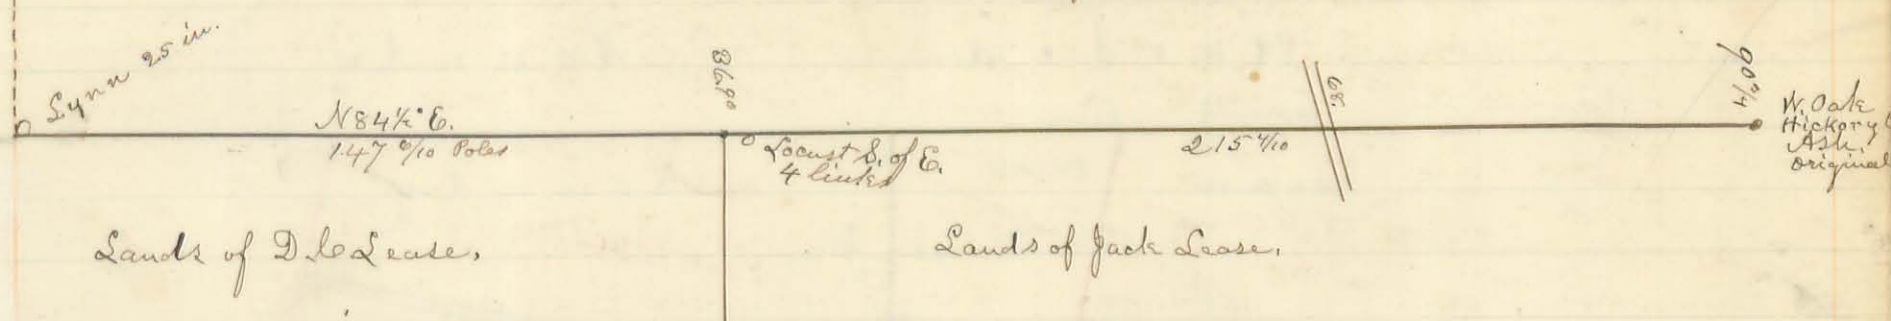 Lynn 25 in.
N 84½° E.
147 6/10 Poles
Locust S. of E.
4 links
215 4/10
68.
W. Oak
Hickory
Ash.
original
Lands of D C Lease.
Lands of Jack Lease.